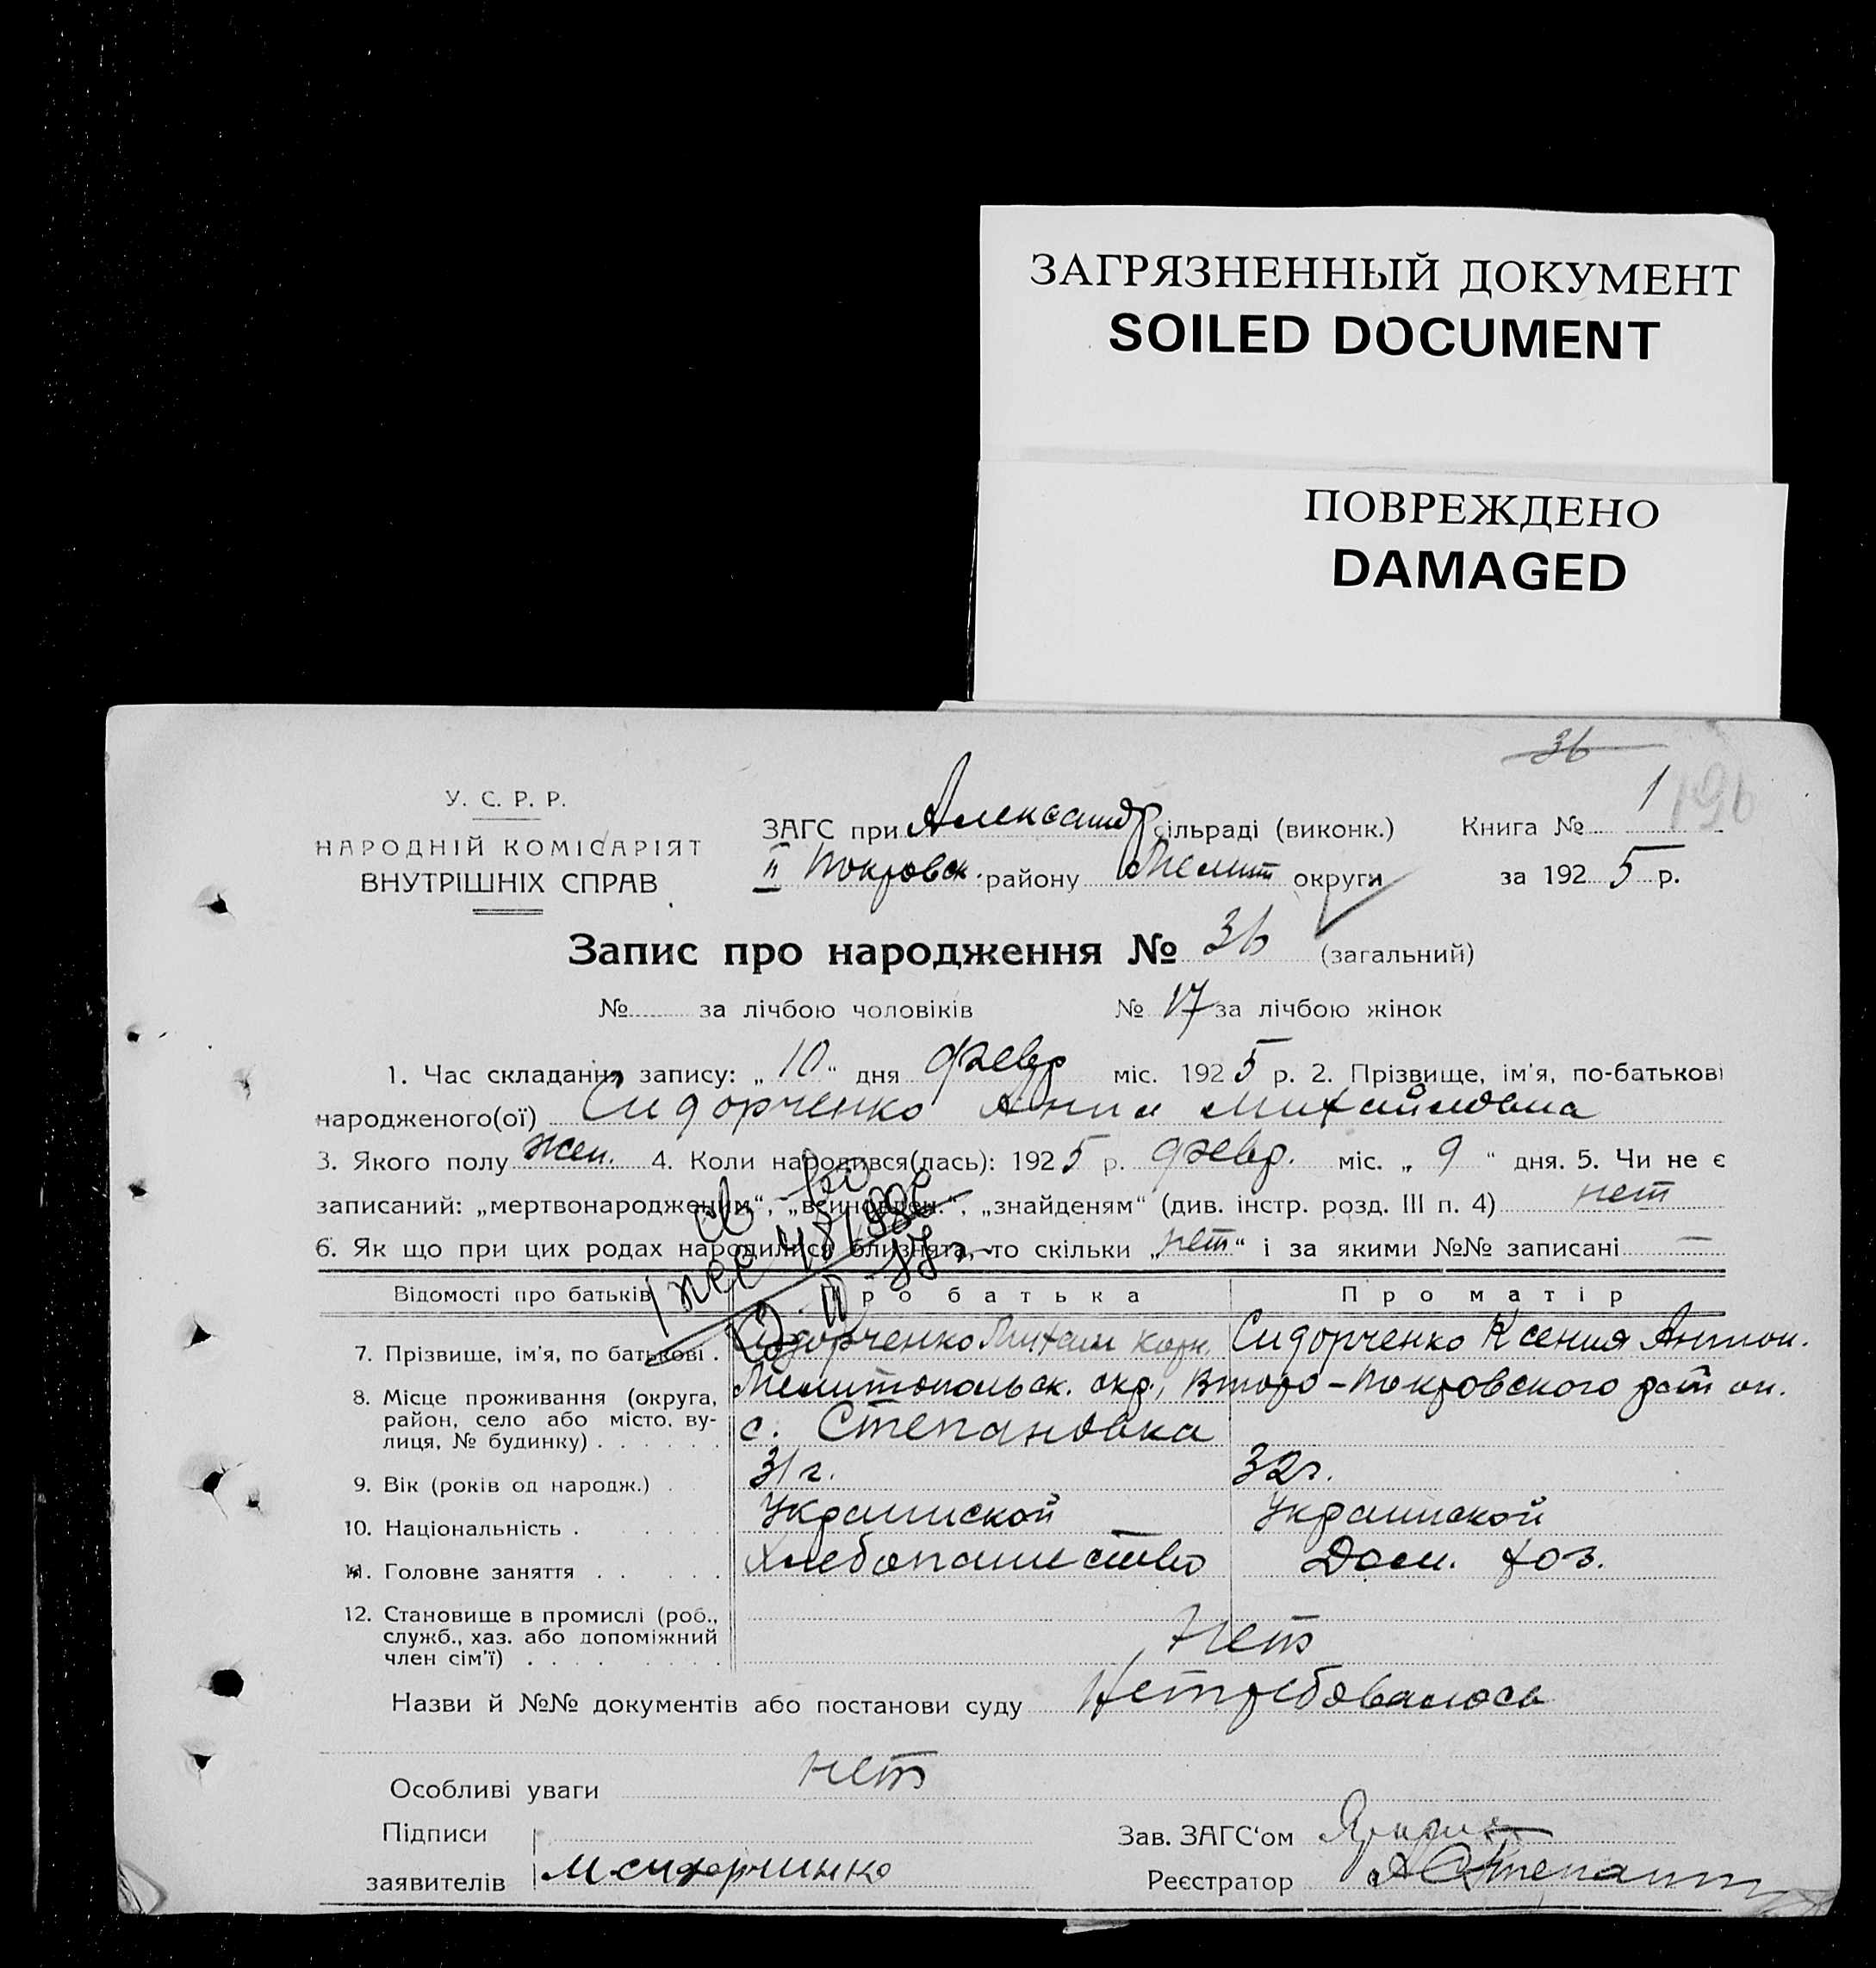 ЗАГРЯЗНЕННЫЙ ДОКУМЕНТ
SOILED DOCUMENT
ПОВРЕЖДЕНО
DAMAGED
36
У. С. Р. Р.
НАРОДНІЙ КОМІСАРІЯТ
ВНУТРІШНІХ СПРАВ
ЗАГС при Александр сільраді (виконк.) Книга № 1 196
II Покровск. району Мелит округи за 1925 р.
Запис про народження № 36 (загальний)
№ за лічбою чоловіків № 17 за лічбою жінок
1. Час складання запису: „10“ дня февр міс. 1925 р. 2. Прізвище, ім'я, по-батькові
народженого(ої) Сидорченко Анна Михайловна
3. Якого полу жен. 4. Коли народився(лась): 1925 р. февр. міс. „9“ дня. 5. Чи не є
записаний: „мертвонародженим“, „всиновлен.“, „знайденям“ (див. інстр. розд. III п. 4) нет
6. Як що при цих родах народилися близнята, то скільки „нет“ і за якими №№ записані —
Відомості про батьків Про батька Про матір
7. Прізвище, ім'я, по батькові . Сидорченко Михаил Корн. Сидорченко Ксения Антон.
8. Місце проживання (округа, Мелитопольск. окр., Второ-Покровского
район, село або місто, ву-
лиця, № будинку) . . . . . . с. Степановка
9. Вік (років од народж.) . 31 г. 32 г.
10. Національність . . . . . Украинской Украинской
11. Головне заняття . . . . . Хлебопашество Дом. хоз.
12. Становище в промислі (роб.,
служб., хаз. або допоміжний
член сім'ї) . . . . . . . . нет
Назви й №№ документів або постанови суду Нетребовалось
Особливі уваги нет
Підписи Зав. ЗАГС'ом
заявителів М Сидорчинко Реєстратор